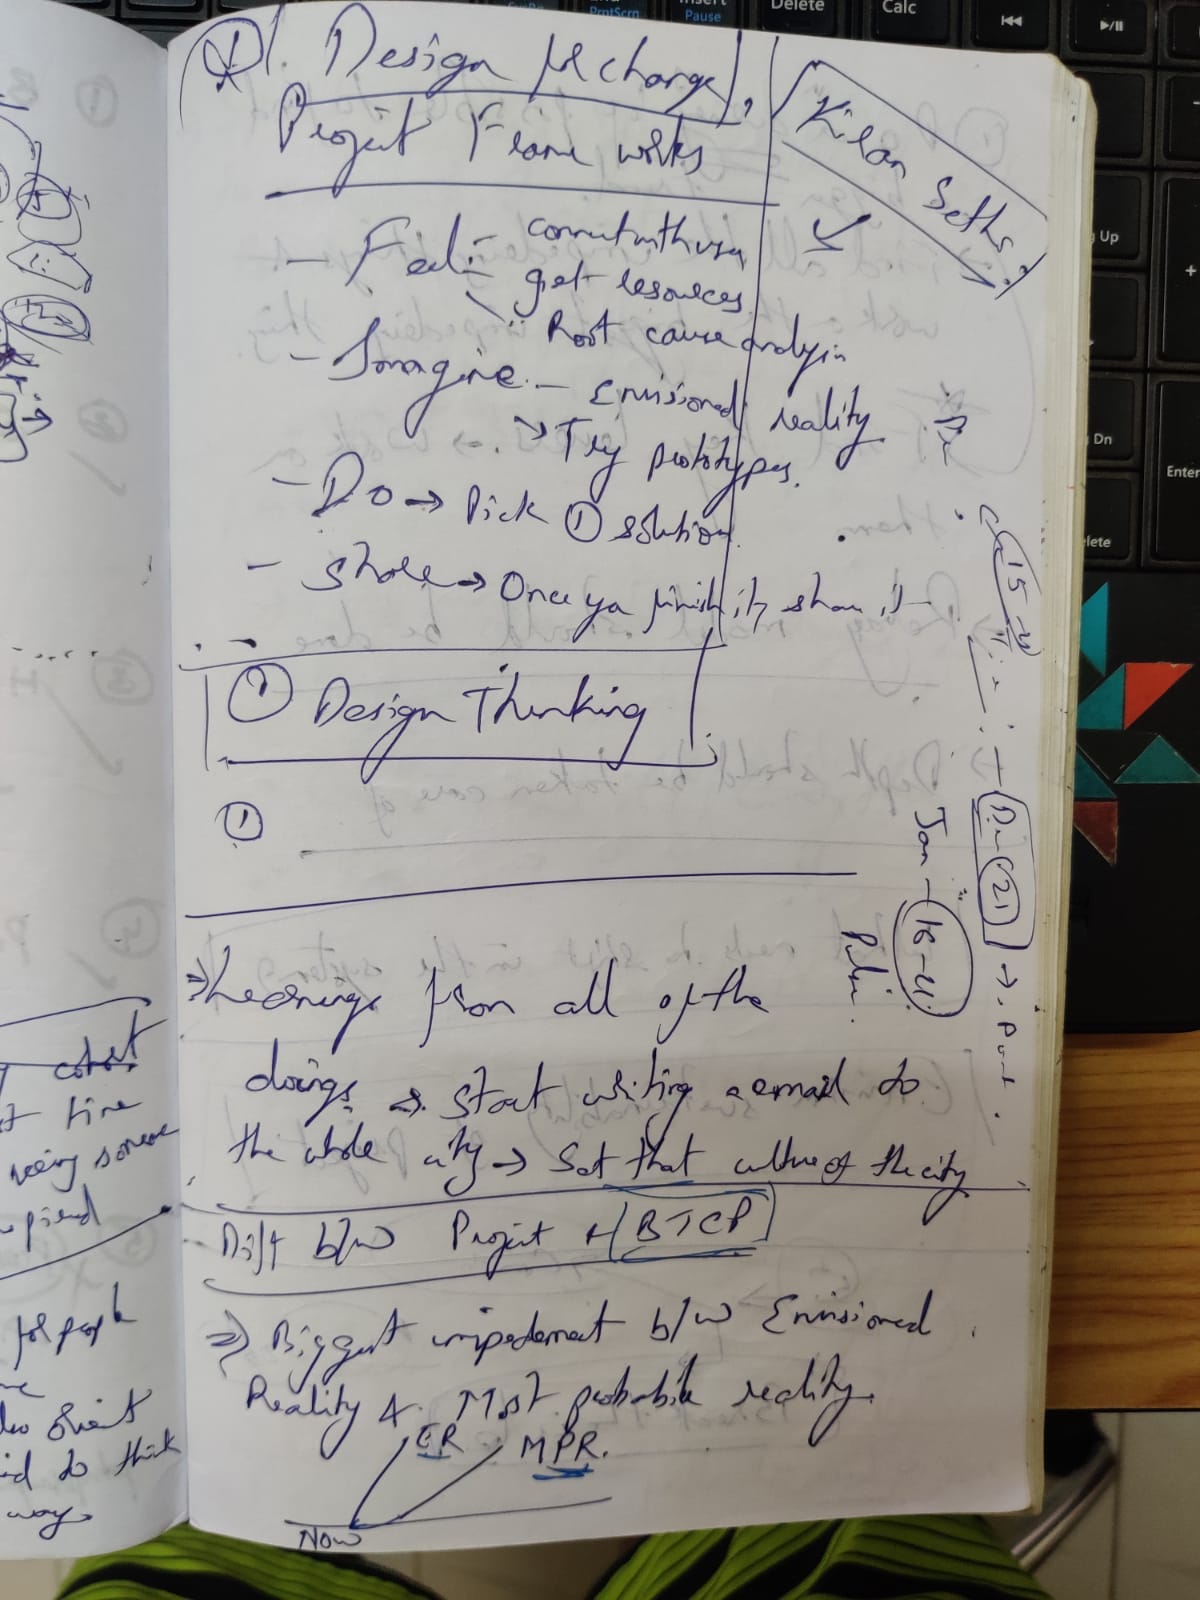 1. Design for change,
Project Frame works
Kiran Seths
- Feel :- connect with user
get resources
Root cause analysis
- Imagine - Envisioned reality
→ Try prototypes.
- Do → Pick ① solution.
- Share → Once ya finish it, share it
① Design Thinking
①
15-
21
Jan - 16-
⇒ Learnings from all of the
doings → Start writing a email to
the whole city → Set that culture of the city
Diff b/w Project & BTCP
⇒ Biggest impedement b/w Envisioned
Reality & Most probable reality.
ER MPR.
Now
cohort
time
someone
friend
for people
to think
way.
PrntScrn
Insert
Pause
Delete
Calc
Up
Dn
Enter